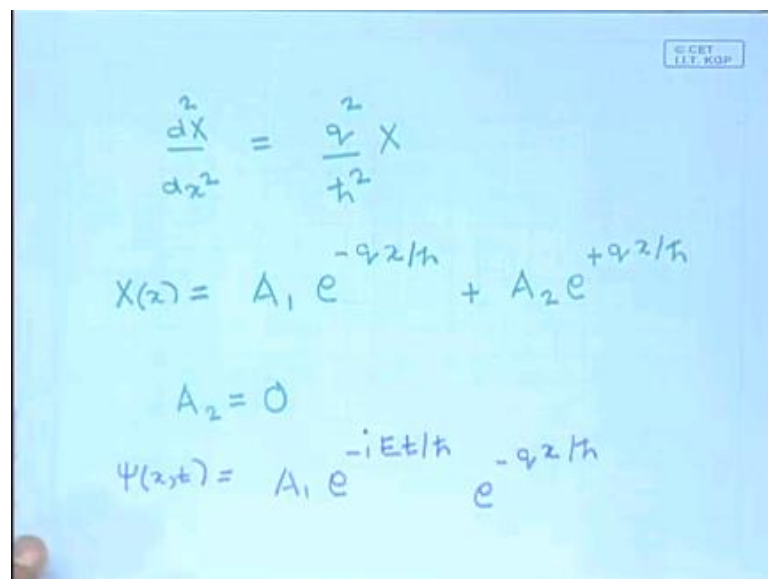 © CET
I.I.T. KGP
d²X/dx² = q²/ħ² X
X(x) = A₁ e^(-qx/ħ) + A₂ e^(+qx/ħ)
A₂ = 0
Ψ(x,t) = A₁ e^(-iEt/ħ) e^(-qx/ħ)